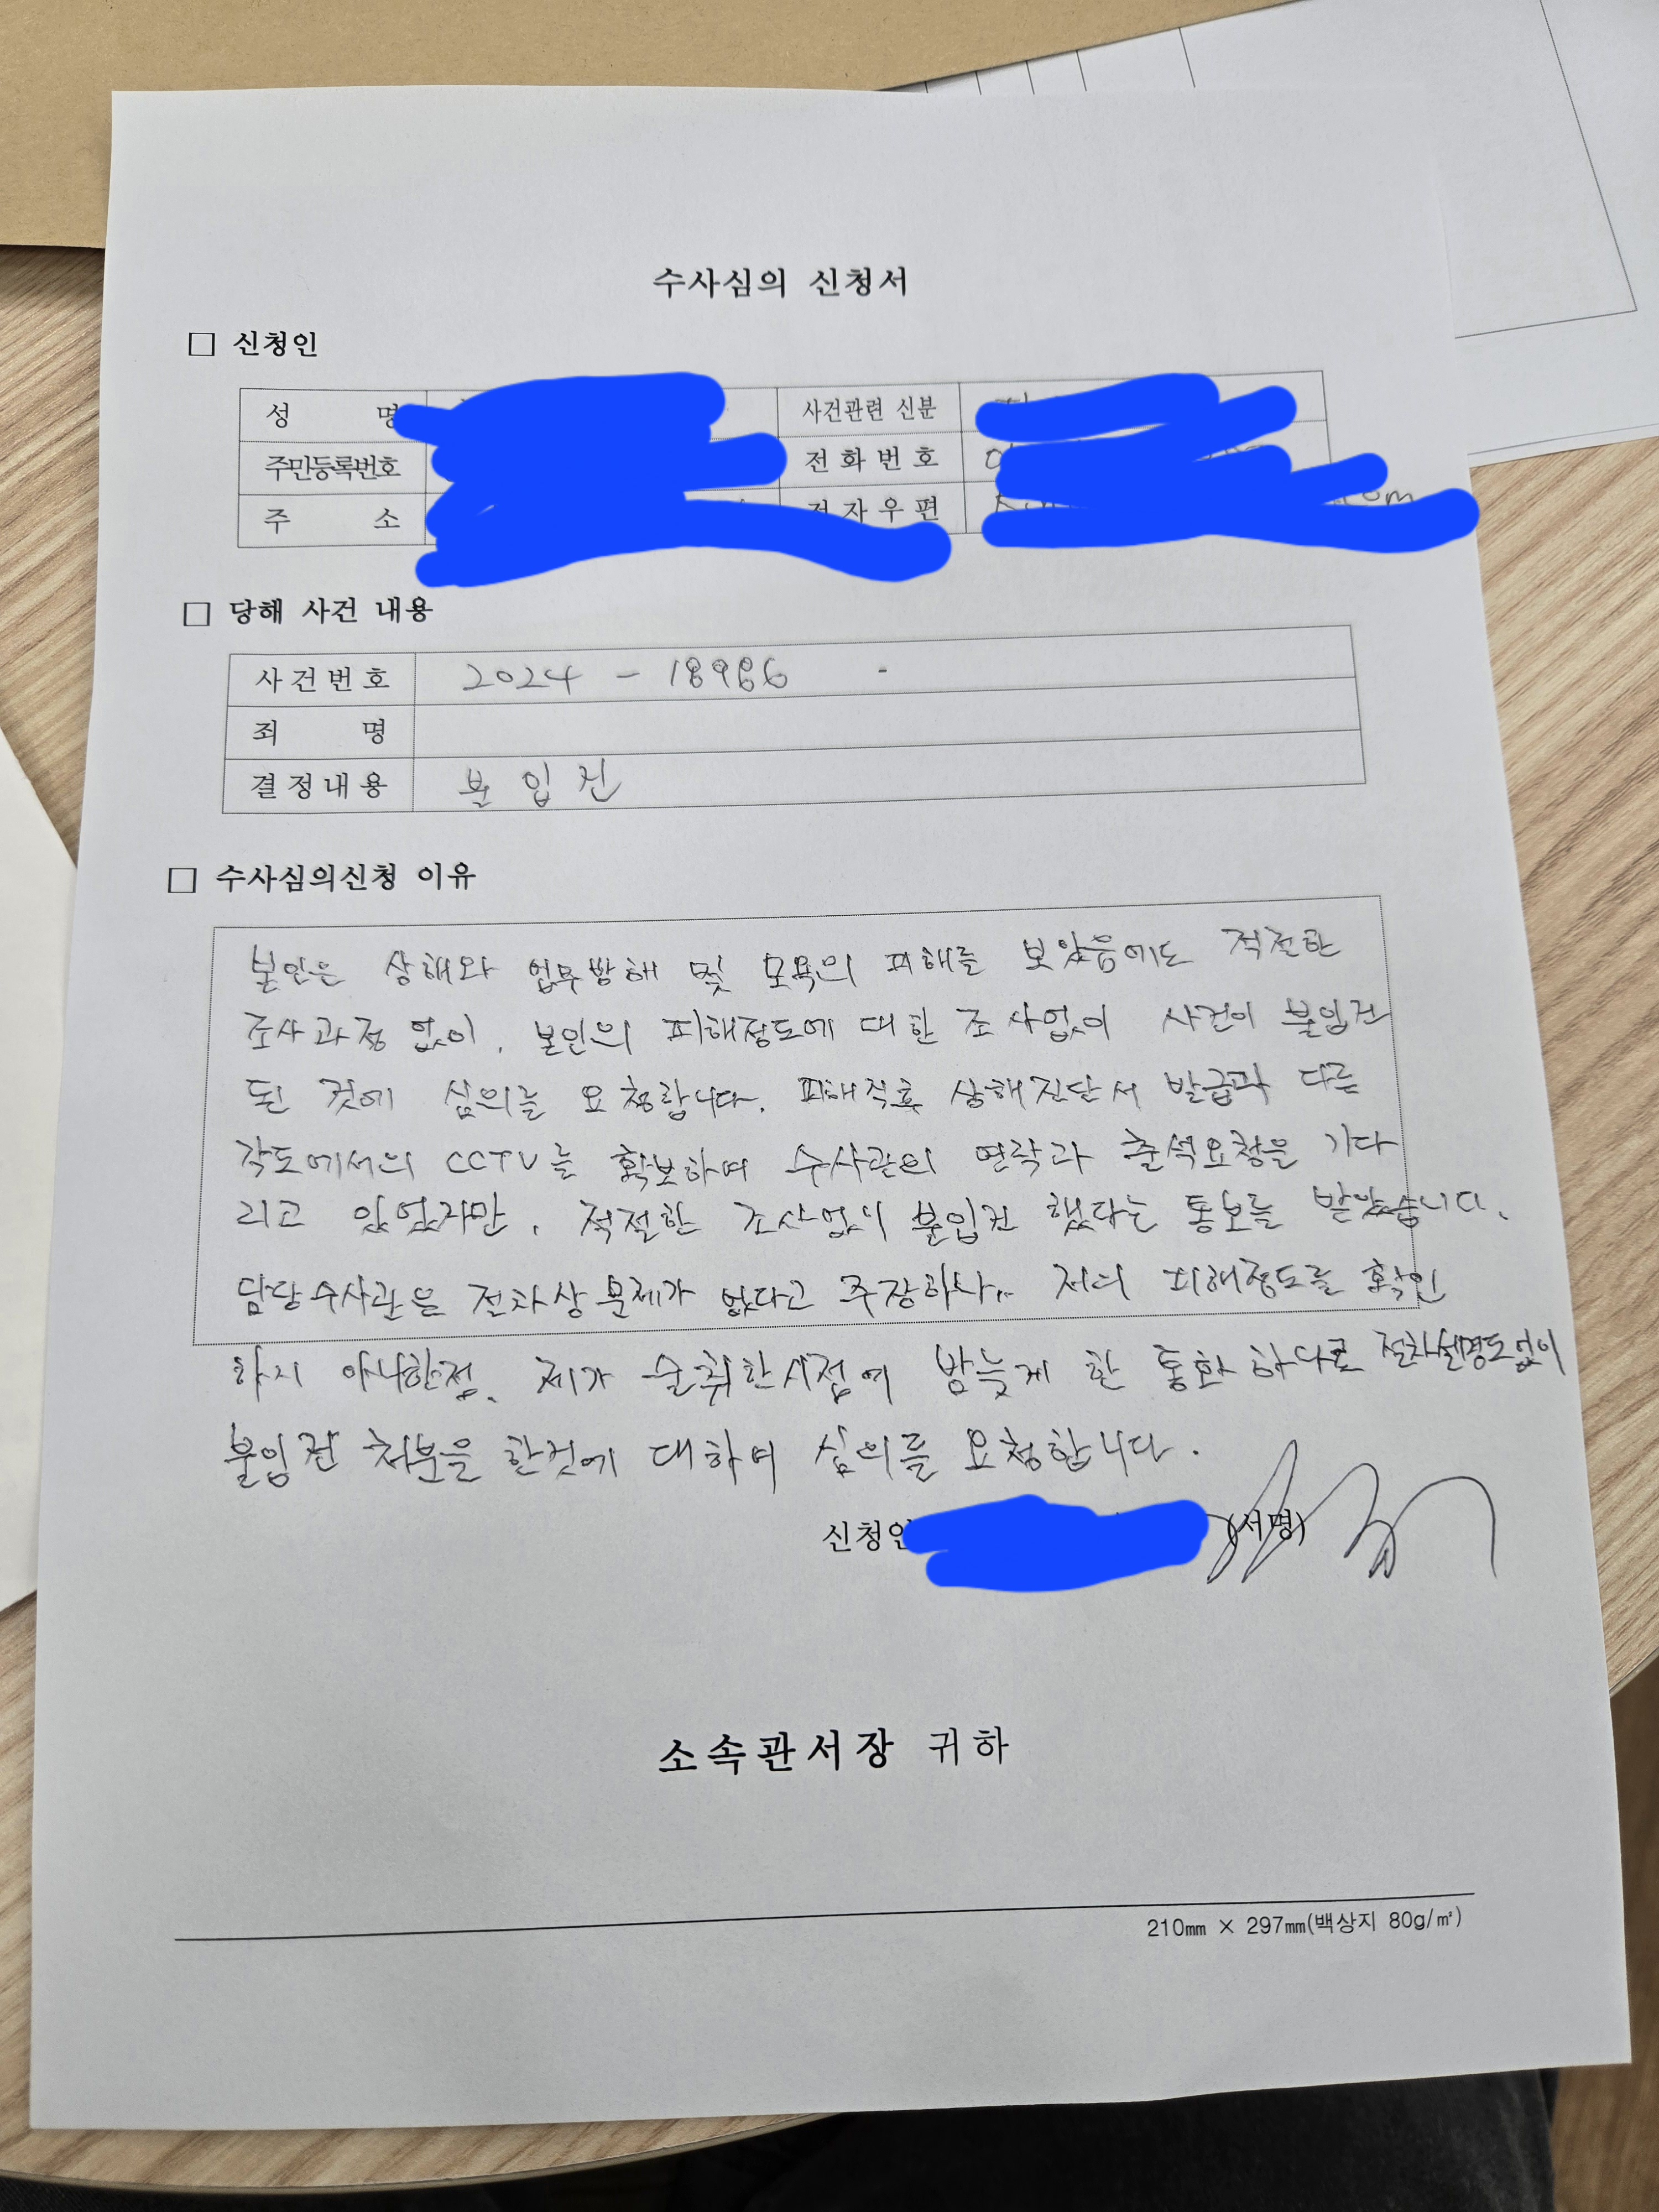 수사심의 신청서
□ 신청인
성 명 사건관련 신분
주민등록번호 전화번호
주 소 전자우편 om
□ 당해 사건 내용
사건번호 2024 - 18986 -
죄 명
결정내용 불입건
□ 수사심의신청 이유
본인은 상해와 업무방해 및 모욕의 피해를 보았음에도 적절한
조사과정 없이, 본인의 피해정도에 대한 조사없이 사건이 불입건
된 것에 심의를 요청합니다. 피해직후 상해진단서 발급과 다른
각도에서의 CCTV를 확보하여 수사관의 연락과 출석요청을 기다
리고 있었지만, 적절한 조사없이 불입건 했다는 통보를 받았습니다.
담당수사관은 절차상 문제가 없다고 주장하나, 저의 피해정도를 확인
하지 아니한점, 제가 술취한시점에 밤늦게 한 통화 하나로 절차설명도없이
불입건 처분을 한것에 대하여 심의를 요청합니다.
신청인 (서명)
소속관서장 귀하
210㎜ × 297㎜(백상지 80g/㎡)